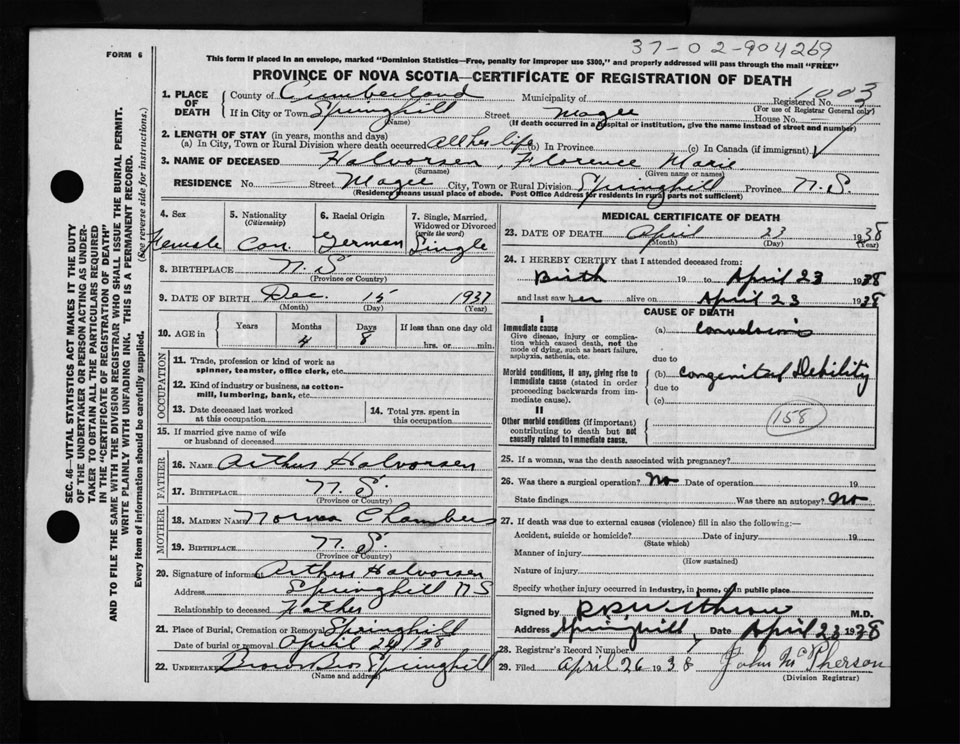 37-02-904269
FORM 6
This form if placed in an envelope, marked "Dominion Statistics—Free, penalty for improper use $300," and properly addressed will pass through the mail "FREE"
PROVINCE OF NOVA SCOTIA—CERTIFICATE OF REGISTRATION OF DEATH
1. PLACE OF DEATH County of Cumberland Municipality of Registered No. 1003
(For use of Registrar General only)
If in City or Town Springhill Street Magee House No. —
(Name) (If death occurred in a hospital or institution, give the name instead of street and number)
2. LENGTH OF STAY (in years, months and days)
(a) In City, Town or Rural Division where death occurred all her life (b) In Province (c) In Canada (if immigrant)
3. NAME OF DECEASED Halvorsen, Florence Marie
(Surname) (Given name or names)
RESIDENCE No. — Street Magee City, Town or Rural Division Springhill Province N.S.
(Residence means usual place of abode. Post Office Address for residents in rural parts not sufficient)
4. Sex Female
5. Nationality (Citizenship) Can.
6. Racial Origin German
7. Single, Married, Widowed or Divorced (write the word) Single
8. BIRTHPLACE N.S
(Province or Country)
9. DATE OF BIRTH Dec. 15 1937
(Month) (Day) (Year)
10. AGE in Years Months 4 Days 8 If less than one day old hrs. or min.
OCCUPATION
11. Trade, profession or kind of work as spinner, teamster, office clerk, etc.
12. Kind of industry or business, as cotton-mill, lumbering, bank, etc.
13. Date deceased last worked at this occupation
14. Total yrs. spent in this occupation
15. If married give name of wife or husband of deceased
FATHER
16. NAME Arthur Halvorsen
17. BIRTHPLACE N.S.
(Province or Country)
MOTHER
18. MAIDEN NAME Norma Chambers
19. BIRTHPLACE N.S.
(Province or Country)
20. Signature of informant Arthur Halvorsen
Address Springhill NS
Relationship to deceased Father
21. Place of Burial, Cremation or Removal Springhill
Date of burial or removal April 24/38
22. UNDERTAKER Brown Bros Springhill
(Name and address)
MEDICAL CERTIFICATE OF DEATH
23. DATE OF DEATH April 23 1938
(Month) (Day) (Year)
24. I HEREBY CERTIFY that I attended deceased from:
Birth 19 to April 23 1938
and last saw her alive on April 23 1938
CAUSE OF DEATH
I
Immediate cause
Give disease, injury or complication which caused death, not the mode of dying, such as heart failure, asphyxia, asthenia, etc.
(a) Convulsions
due to
Morbid conditions, if any, giving rise to immediate cause (stated in order proceeding backwards from immediate cause).
(b) Congenital Debility
due to
(c)
II
Other morbid conditions (if important) contributing to death but not causally related to immediate cause.
158
25. If a woman, was the death associated with pregnancy?
26. Was there a surgical operation? No Date of operation 19
State findings Was there an autopsy? No
27. If death was due to external causes (violence) fill in also the following:—
Accident, suicide or homicide? Date of injury 19
(State which)
Manner of injury
(How sustained)
Nature of injury
Specify whether injury occurred in industry, in home, or in public place
Signed by M.D.
Address Springhill Date April 23 1938
28. Registrar's Record Number
29. Filed April 26 1938 John McPherson
(Division Registrar)
SEC. 46—VITAL STATISTICS ACT MAKES IT THE DUTY
OF THE UNDERTAKER OR PERSON ACTING AS UNDER-
TAKER TO OBTAIN ALL THE PARTICULARS REQUIRED
IN THE "CERTIFICATE OF REGISTRATION OF DEATH"
AND TO FILE THE SAME WITH THE DIVISION REGISTRAR WHO SHALL ISSUE THE BURIAL PERMIT.
WRITE PLAINLY WITH UNFADING INK. THIS IS A PERMANENT RECORD.
Every item of information should be carefully supplied. (See reverse side for instructions.)